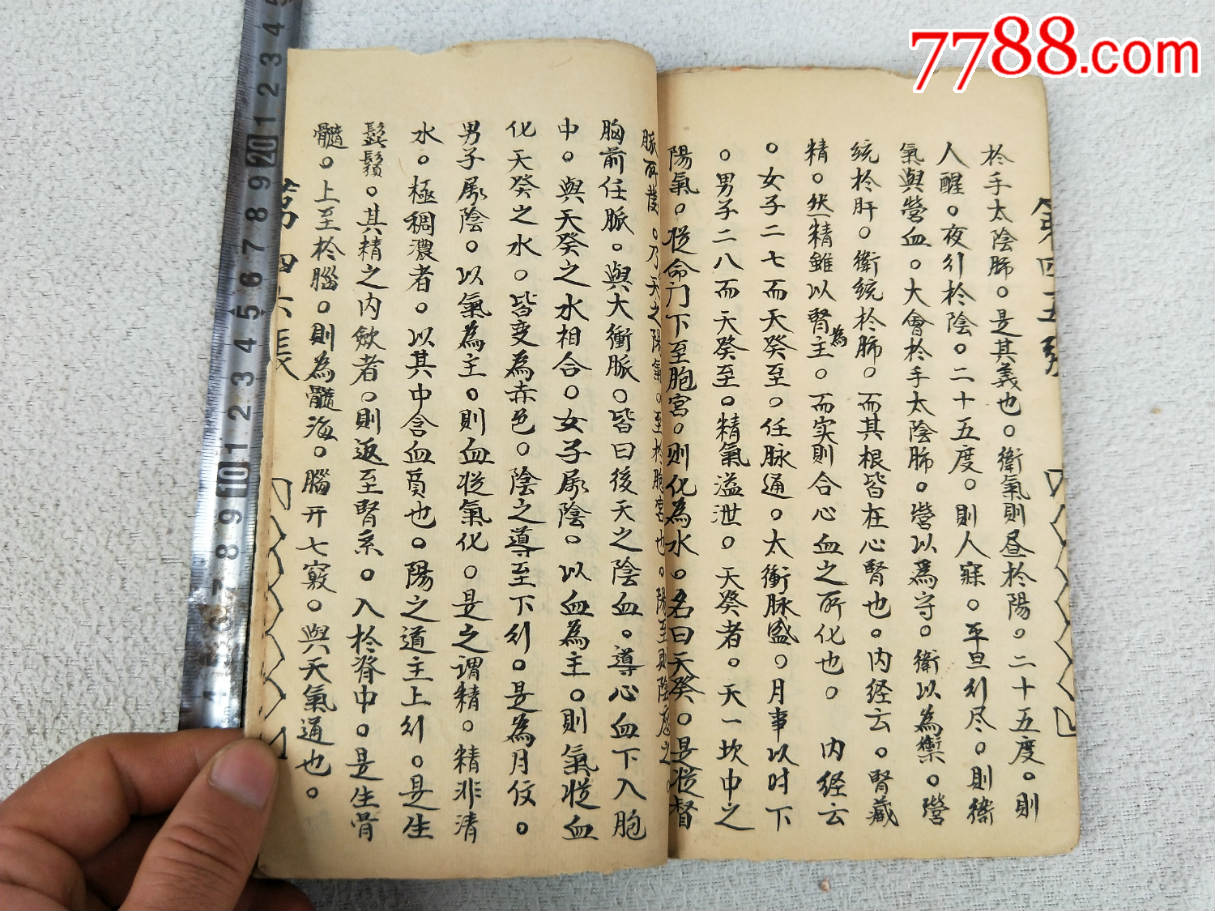 7788.com
第四五張
於手太陰肺。是其義也。衛氣則昼於陽。二十五度。則
人醒。夜行於陰。二十五度。則人寐。平旦行尽。則衛
氣與營血。大會於手太陰肺。營以為守。衛以為衛。營
統於肝。衛統於肺。而其根皆在心腎也。内经云。腎藏
精。然精雖以腎為主。而实則合心血之所化也。 内经云
。女子二七而天癸至。任脉通。太衝脉盛。月事以时下
。男子二八而天癸至。精氣溢泄。天癸者。天一坎中之
陽氣。從命门下至胞宮。則化為水。名曰天癸。是從督
脈而護。乃天之陽氣。至於胞宮也。陽至則陰應之
胸前任脈。與大衝脈。皆曰後天之陰血。導心血下入胞
中。與天癸之水相合。女子属陰。以血為主。則氣從血
化天癸之水。皆变為赤色。陰之導至下行。是為月伩。
男子属陰。以氣為主。則血從氣化。是之谓精。精非清
水。極稠濃者。以其中含血質也。陽之道主上行。是生
髭鬚。其精之内斂者。則返至腎系。入於脊中。是生骨
髓。上至於腦。則為髓海。腦开七竅。與天氣通也。
第四六張